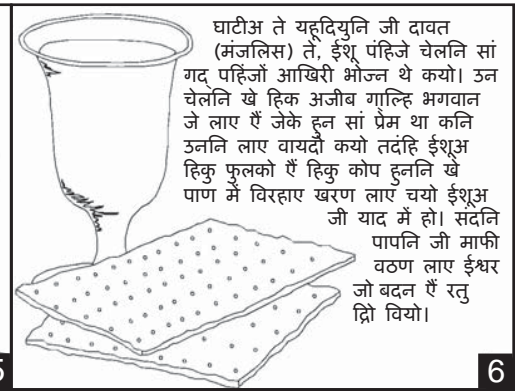 घाटीअ ते यहूदियुनि जी दावत
(मंजलिस) ते, ईशू पंहिजे चेलनि सां
गद् पहिंजों आखिरी भोज्न थे कयो। उन
चेलनि खे हिक अजीब गाल्हि भगवान
जे लाए एैं जेके हुन सां प्रेम था कनि
उननि लाए वायदो कयो तदंहि ईशूअ
हिकु फुलको एैं हिकु कोप हुननि खे
पाण में विरहाए खरण लाए चयो ईशूअ
जी याद में हो। संदनि
पापनि जी माफी
वठण लाए ईश्वर
जो बदन एैं रतु
द्रिो वियो।
5
6